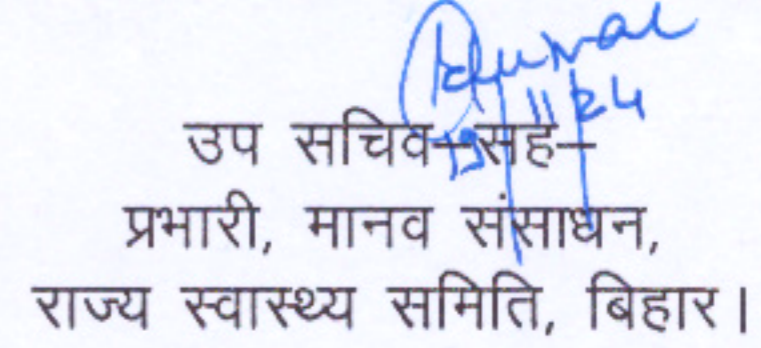 उप सचिव–सह–
प्रभारी, मानव संसाधन,
राज्य स्वास्थ्य समिति, बिहार।